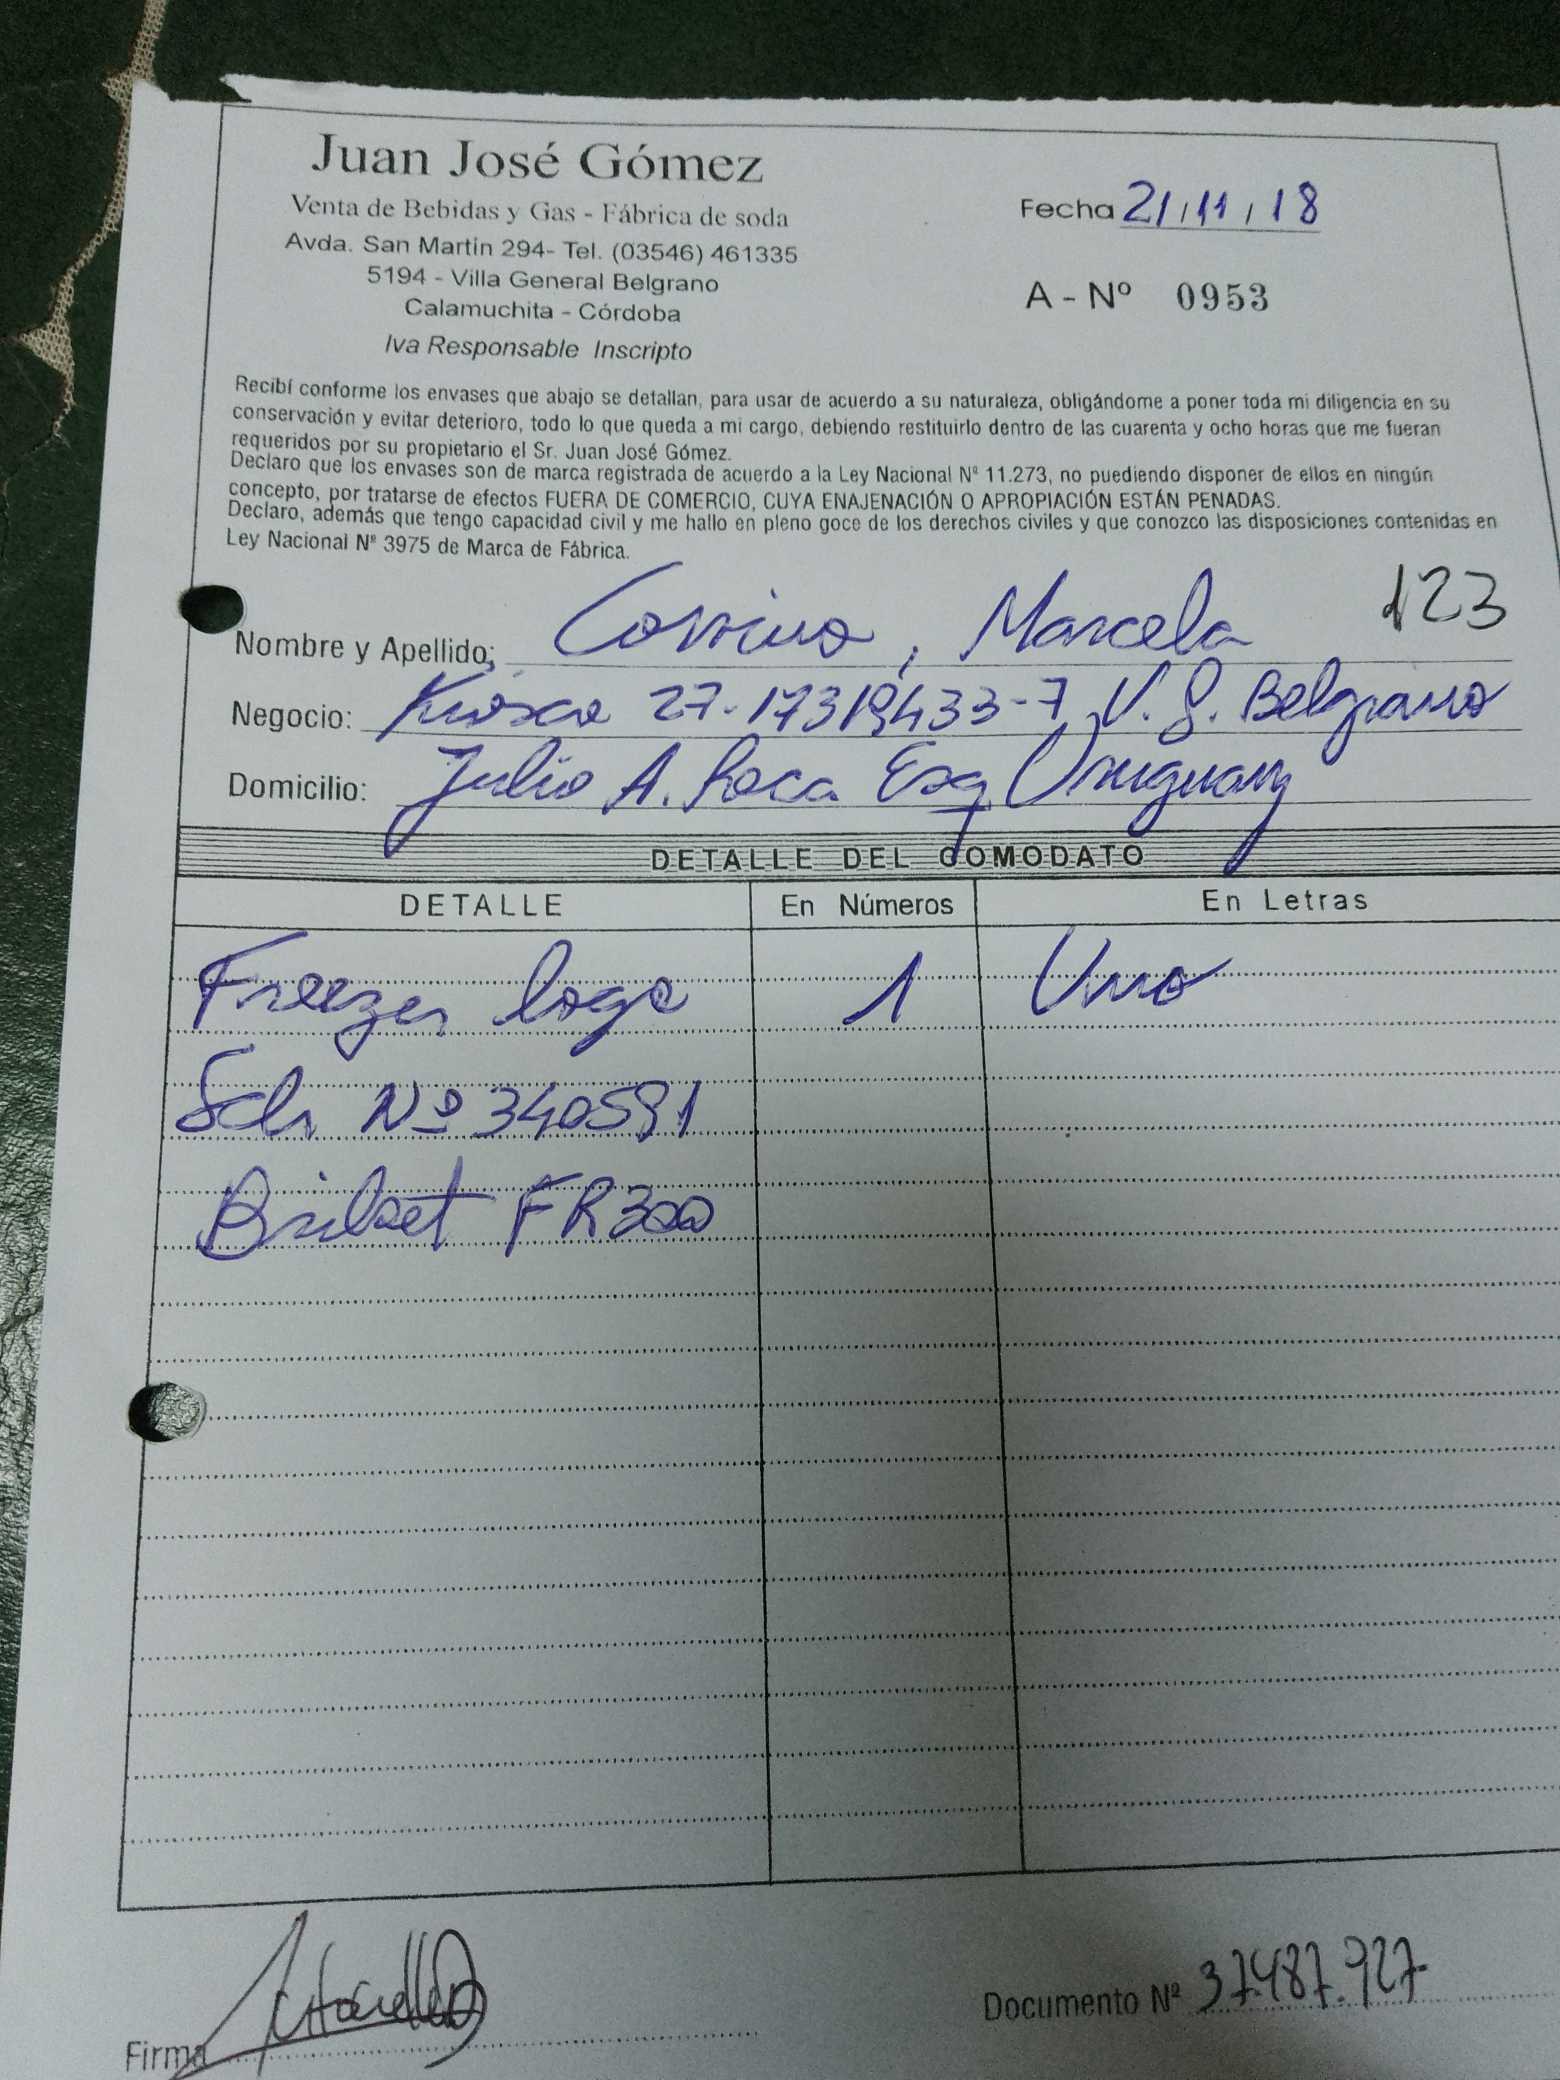 Juan José Gómez
Venta de Bebidas y Gas - Fábrica de soda
Avda. San Martín 294- Tel. (03546) 461335
5194 - Villa General Belgrano
Calamuchita - Córdoba
Iva Responsable Inscripto
Fecha 21/11/18
A - Nº 0953
Recibí conforme los envases que abajo se detallan, para usar de acuerdo a su naturaleza, obligándome a poner toda mi diligencia en su
conservación y evitar deterioro, todo lo que queda a mi cargo, debiendo restituirlo dentro de las cuarenta y ocho horas que me fueran
requeridos por su propietario el Sr. Juan José Gómez.
Declaro que los envases son de marca registrada de acuerdo a la Ley Nacional Nº 11.273, no puediendo disponer de ellos en ningún
concepto, por tratarse de efectos FUERA DE COMERCIO, CUYA ENAJENACIÓN O APROPIACIÓN ESTÁN PENADAS.
Declaro, además que tengo capacidad civil y me hallo en pleno goce de los derechos civiles y que conozco las disposiciones contenidas en
Ley Nacional Nº 3975 de Marca de Fábrica.
123
Nombre y Apellido: , Marcela
Negocio: Kiosco 27-17319433-7 V. G. Belgrano
Domicilio: Julio A. Roca Esq Uruguay
DETALLE DEL COMODATO
DETALLE En Números En Letras
Freezer logo 1 Uno
Sch Nº 340591
Briket FR300
Firma
Documento Nº 37.487.927